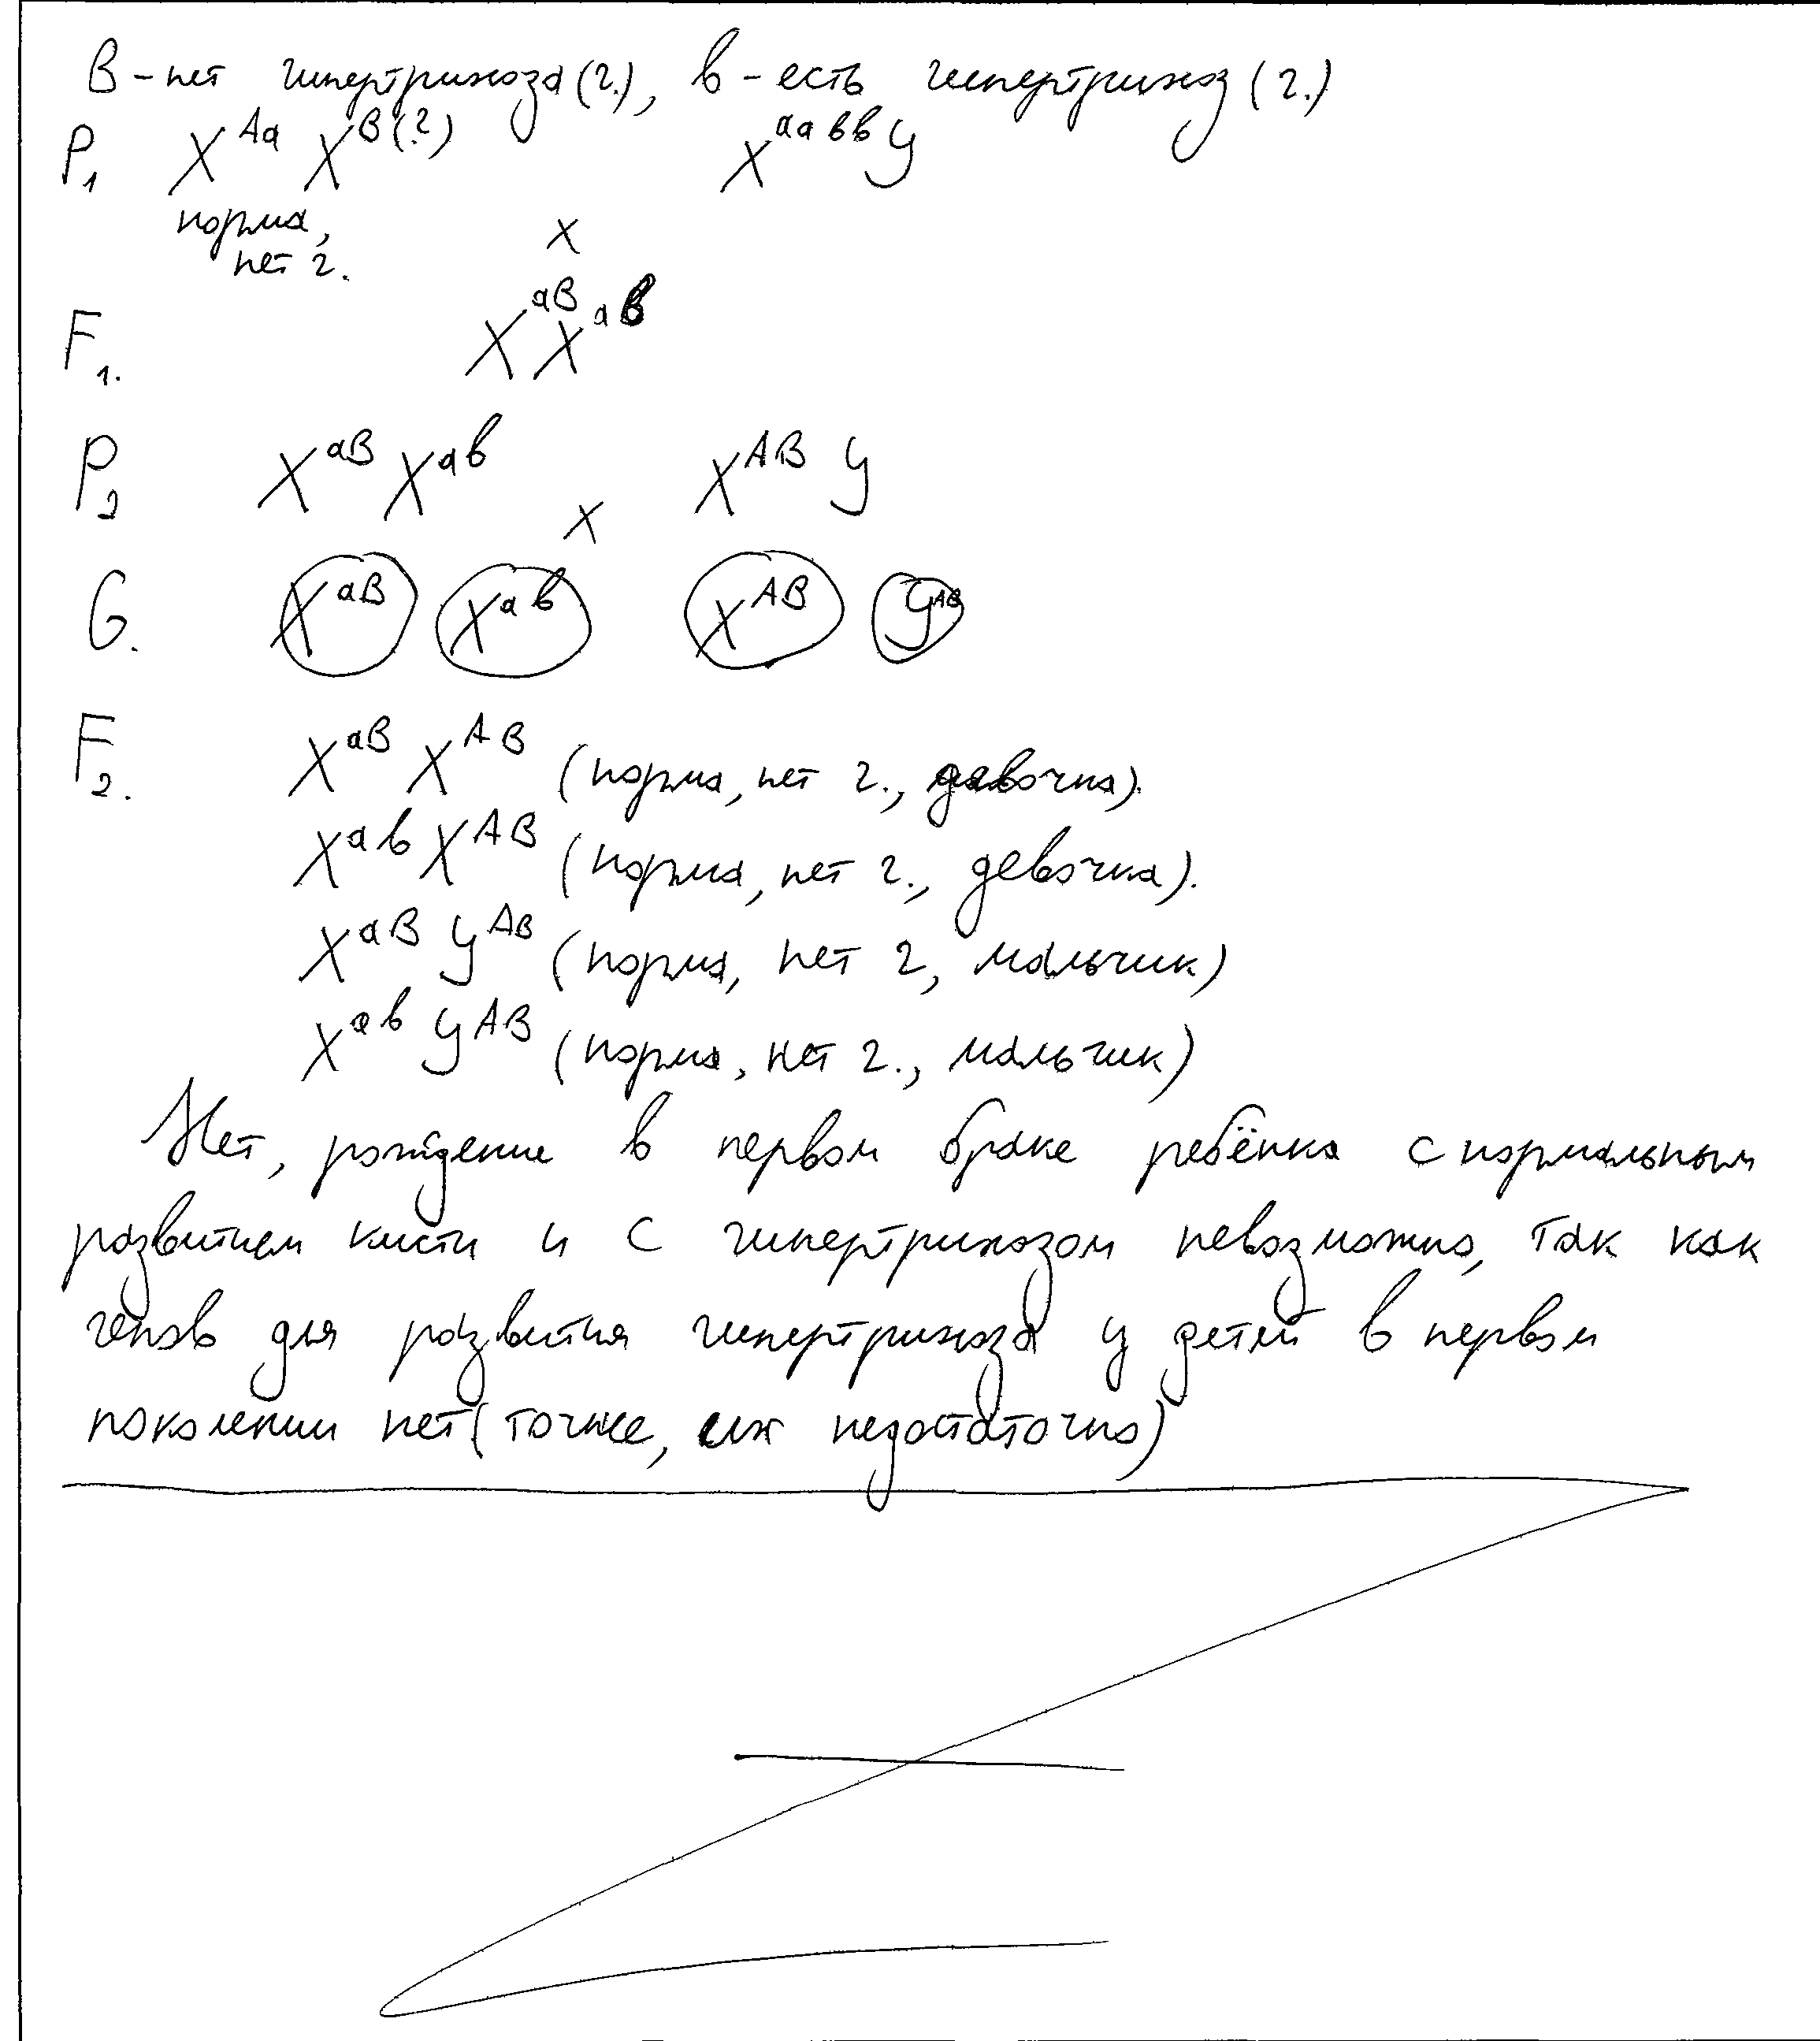 В - нет гипертрихоза (г.), в - есть гипертрихоз (г.)
P₁ X^Aa X^B(?) X^aaвв У
норма,
нет г.
х
F₁. X^aB X^aв
P₂ X^aB X^aв х X^AB У
G. X^aB X^aв X^AB У^AB
F₂. X^aB X^AB (норма, нет г., девочка).
X^aв X^AB (норма, нет г., девочка).
X^aB У^AB (норма, нет г, мальчик)
X^aв У^AB (норма, нет г., мальчик)
Нет, рождение в первом браке ребёнка с нормальным
развитием кисти и с гипертрихозом невозможно, так как
генов для развития гипертрихоза у детей в первом
поколении нет (точнее, их недостаточно)